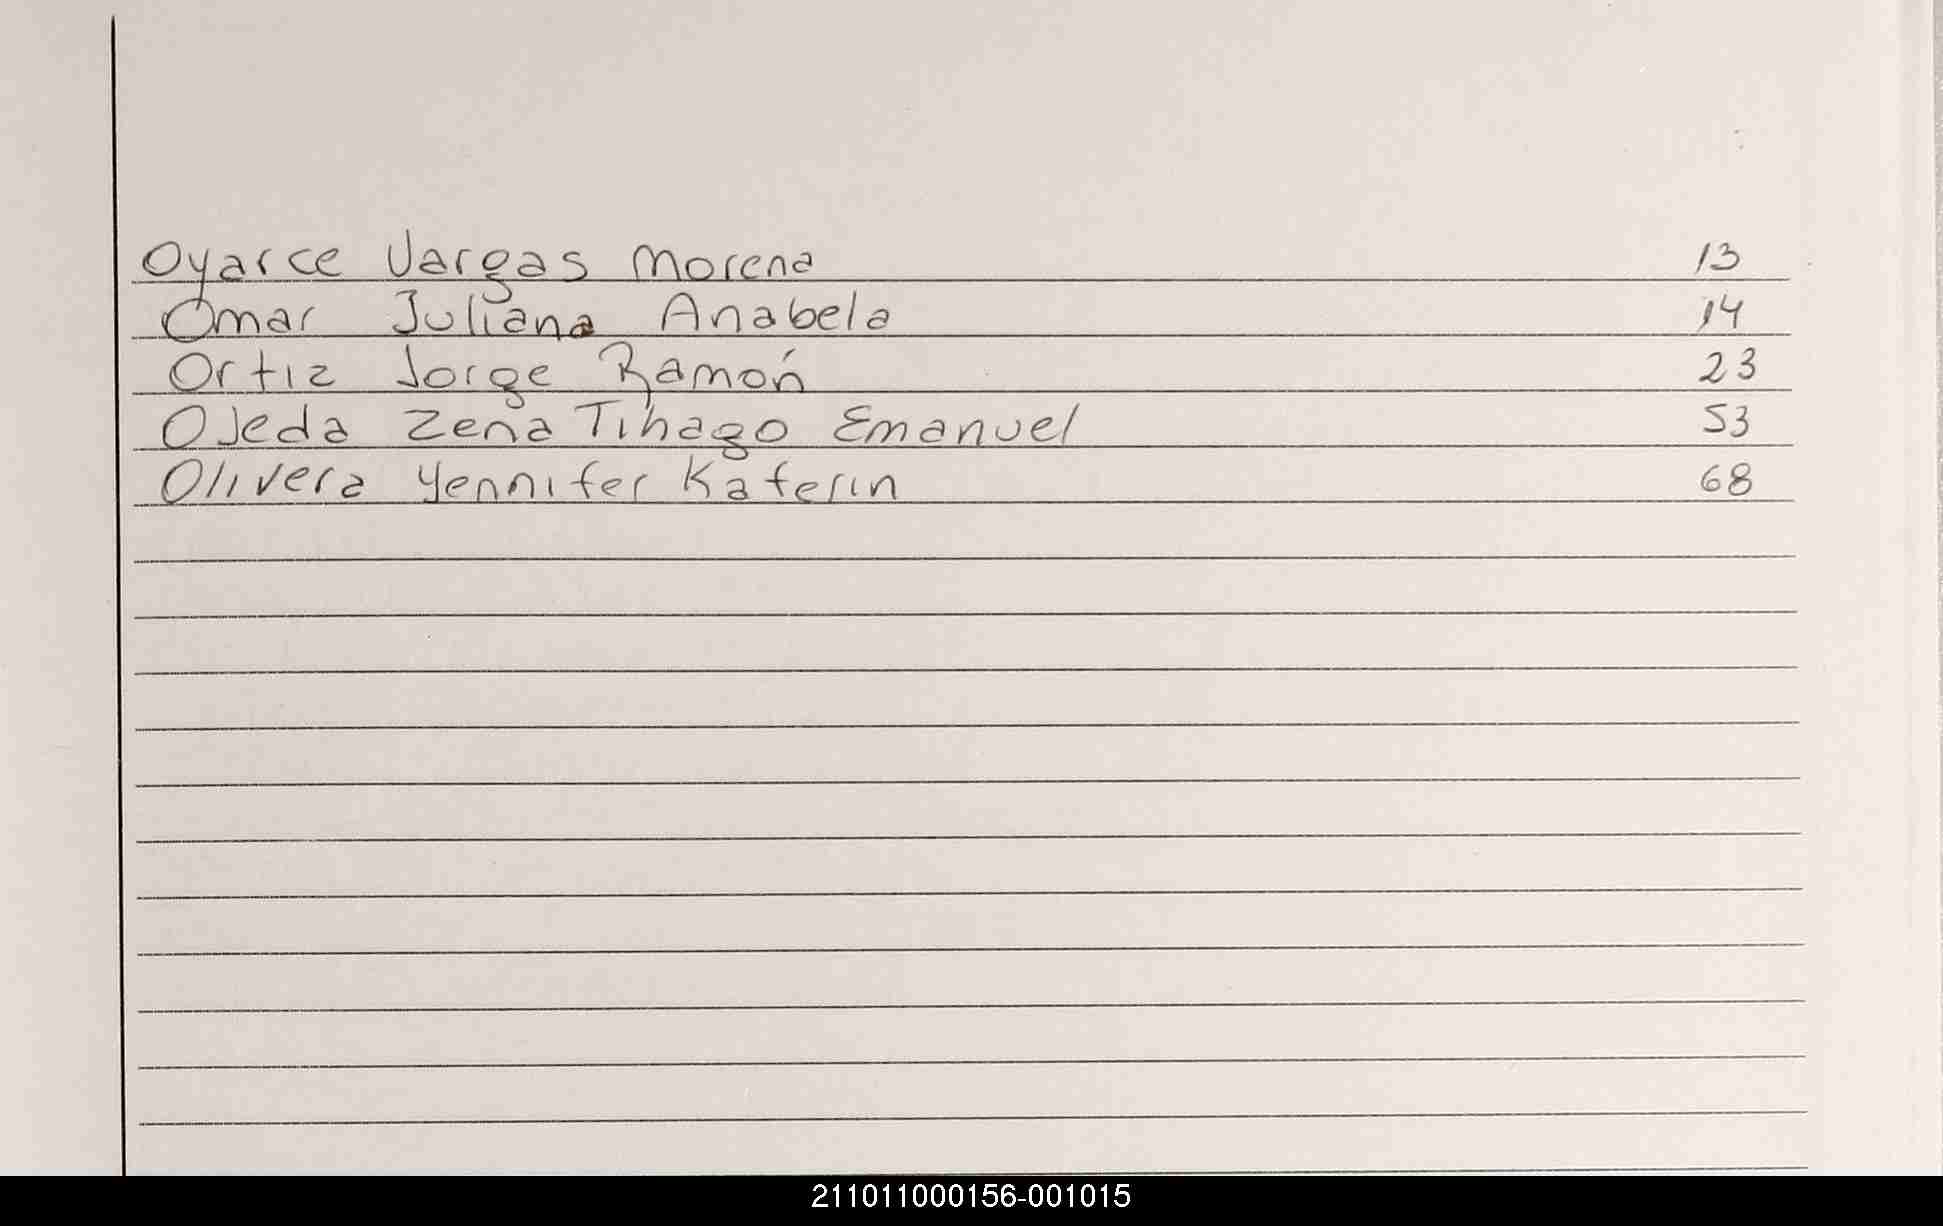 Oyarce Vargas Morena 13
Omar Juliana Anabela 14
Ortiz Jorge Ramón 23
Ojeda Zena Tihago Emanuel 53
Olivera Yennifer Katerin 68
211011000156-001015